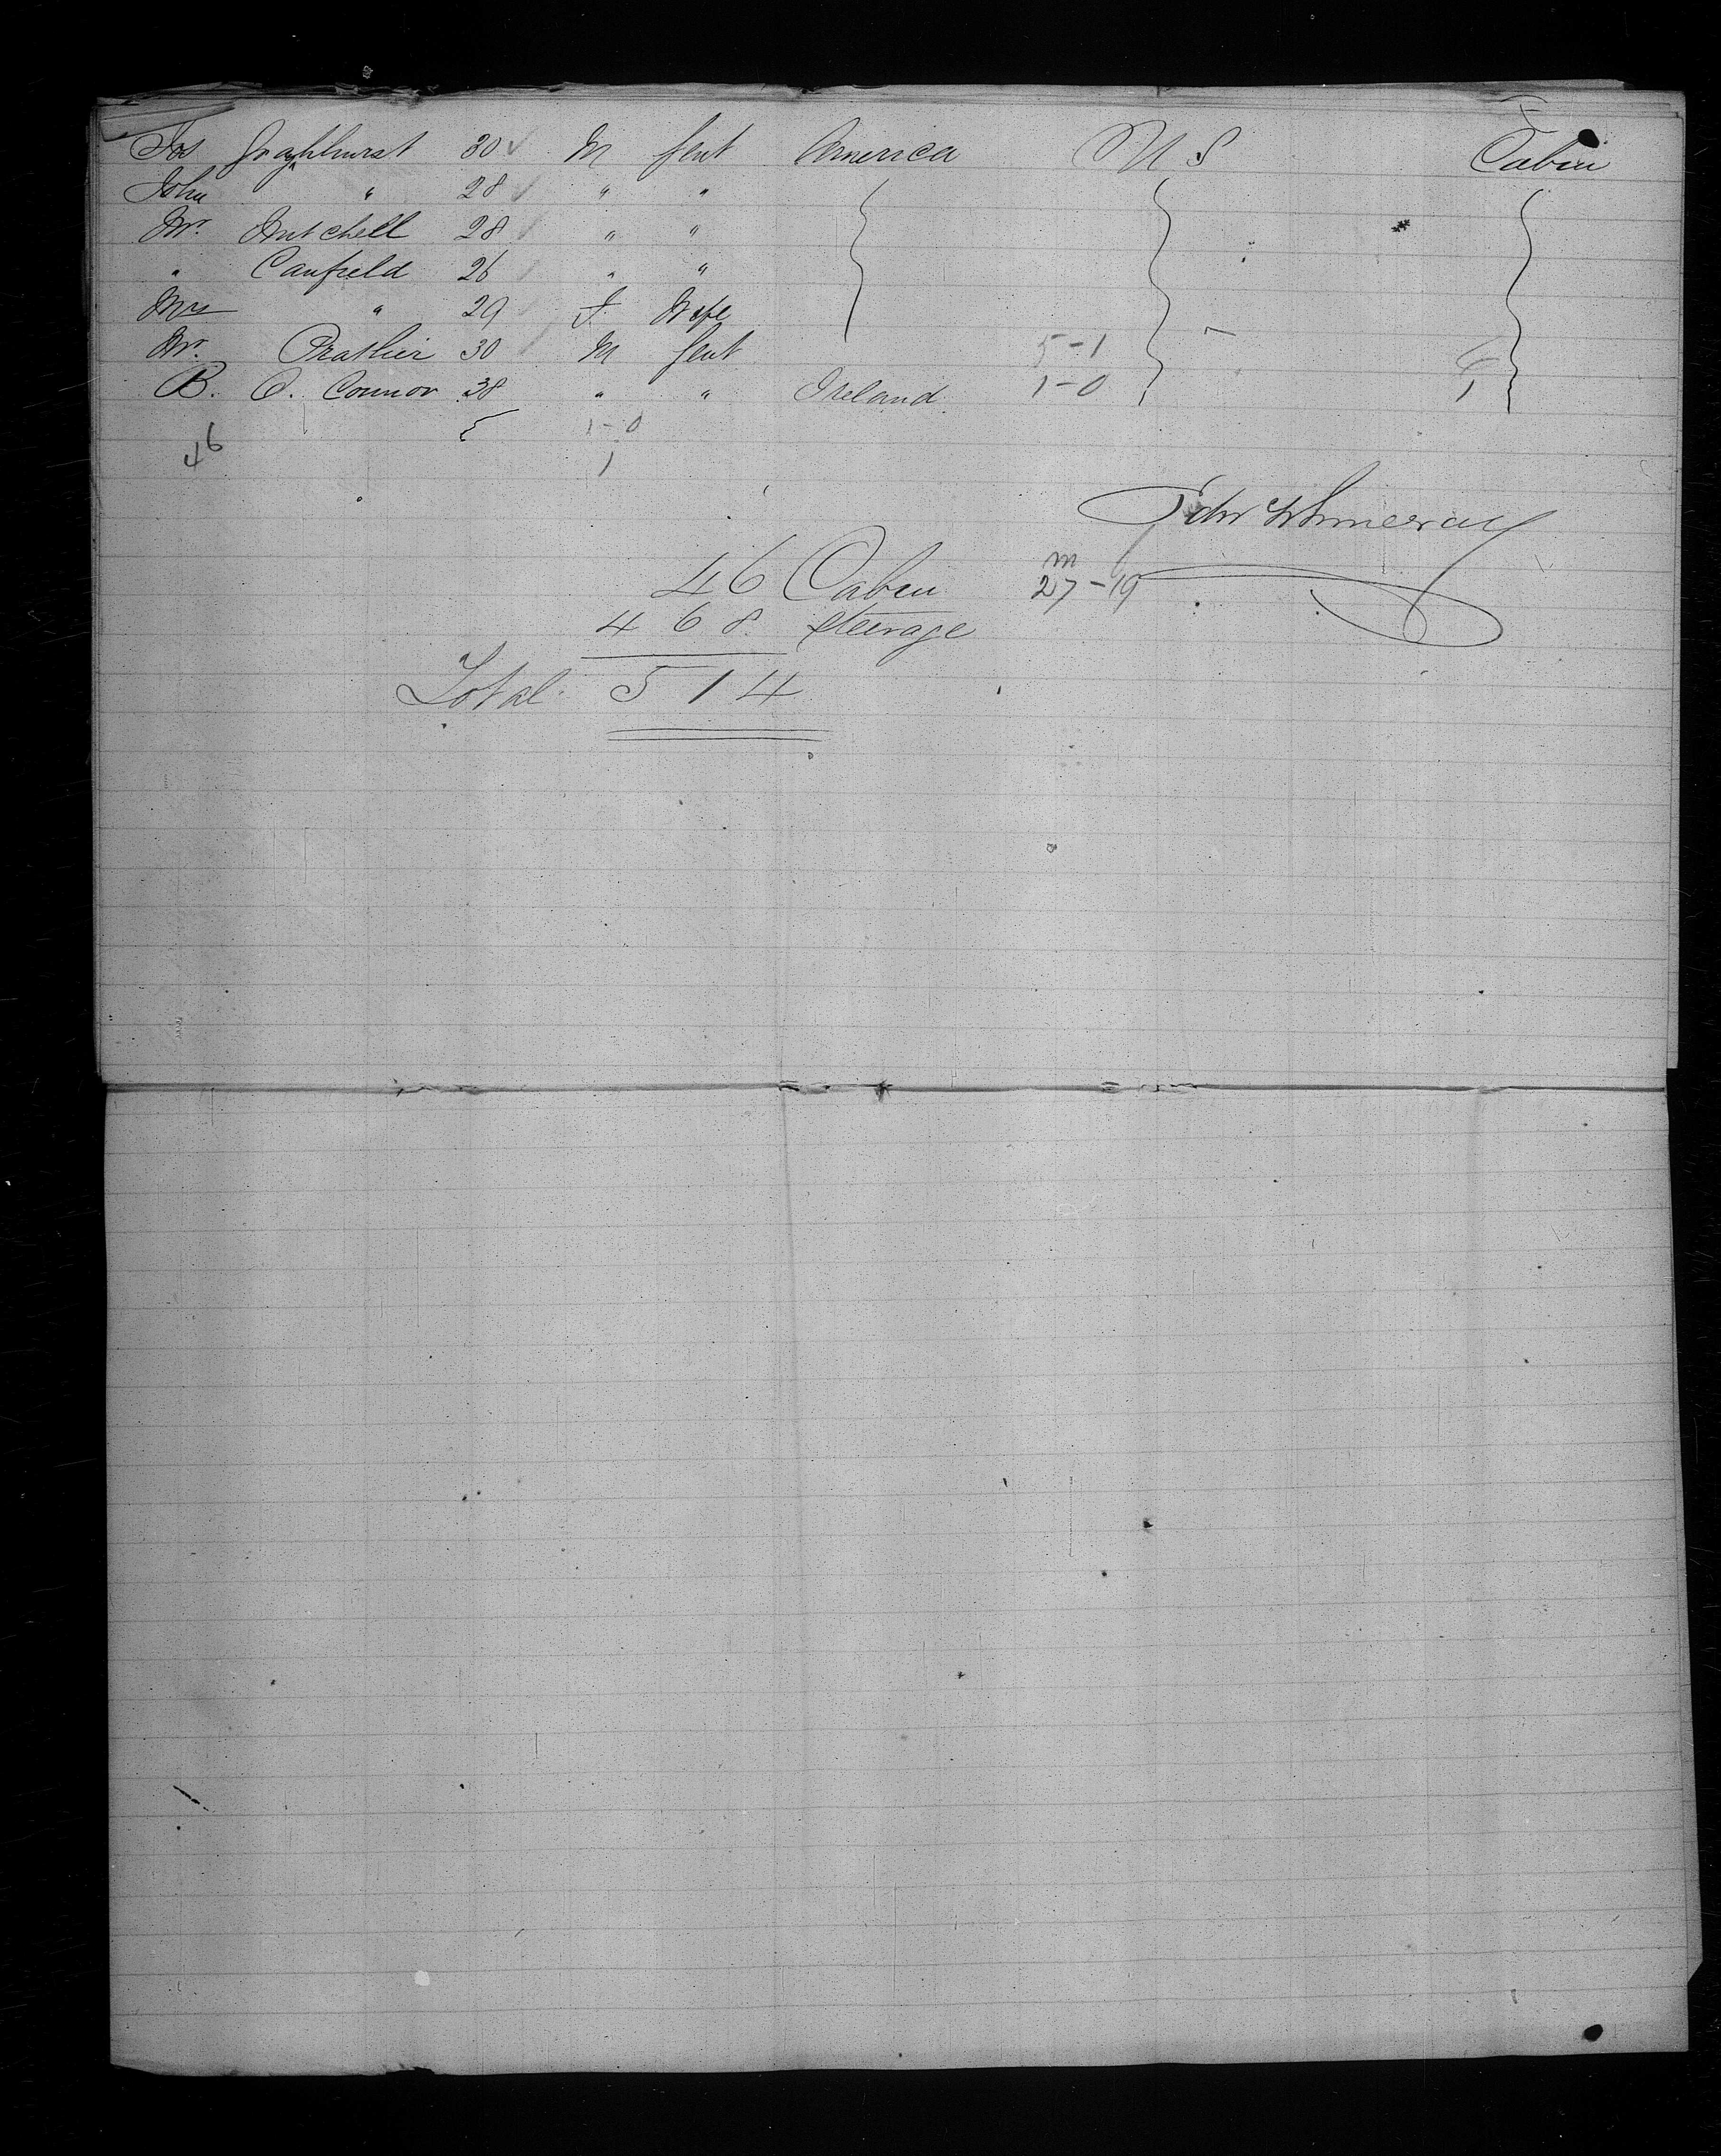 Jos Grayhurst 30 M Gent America U S Cabin
John " 28 " "
Mr. Mutchell 28 " "
" Canfield 26 " "
Mrs " 29 F Wife
Mr. Prathier 30 M Gent 5-1 6
B. O. Connor 38 " " Ireland 1-0 1
1-0
46 1
Edw
46 Cabin m
468 Steerage 27-19
Total 514